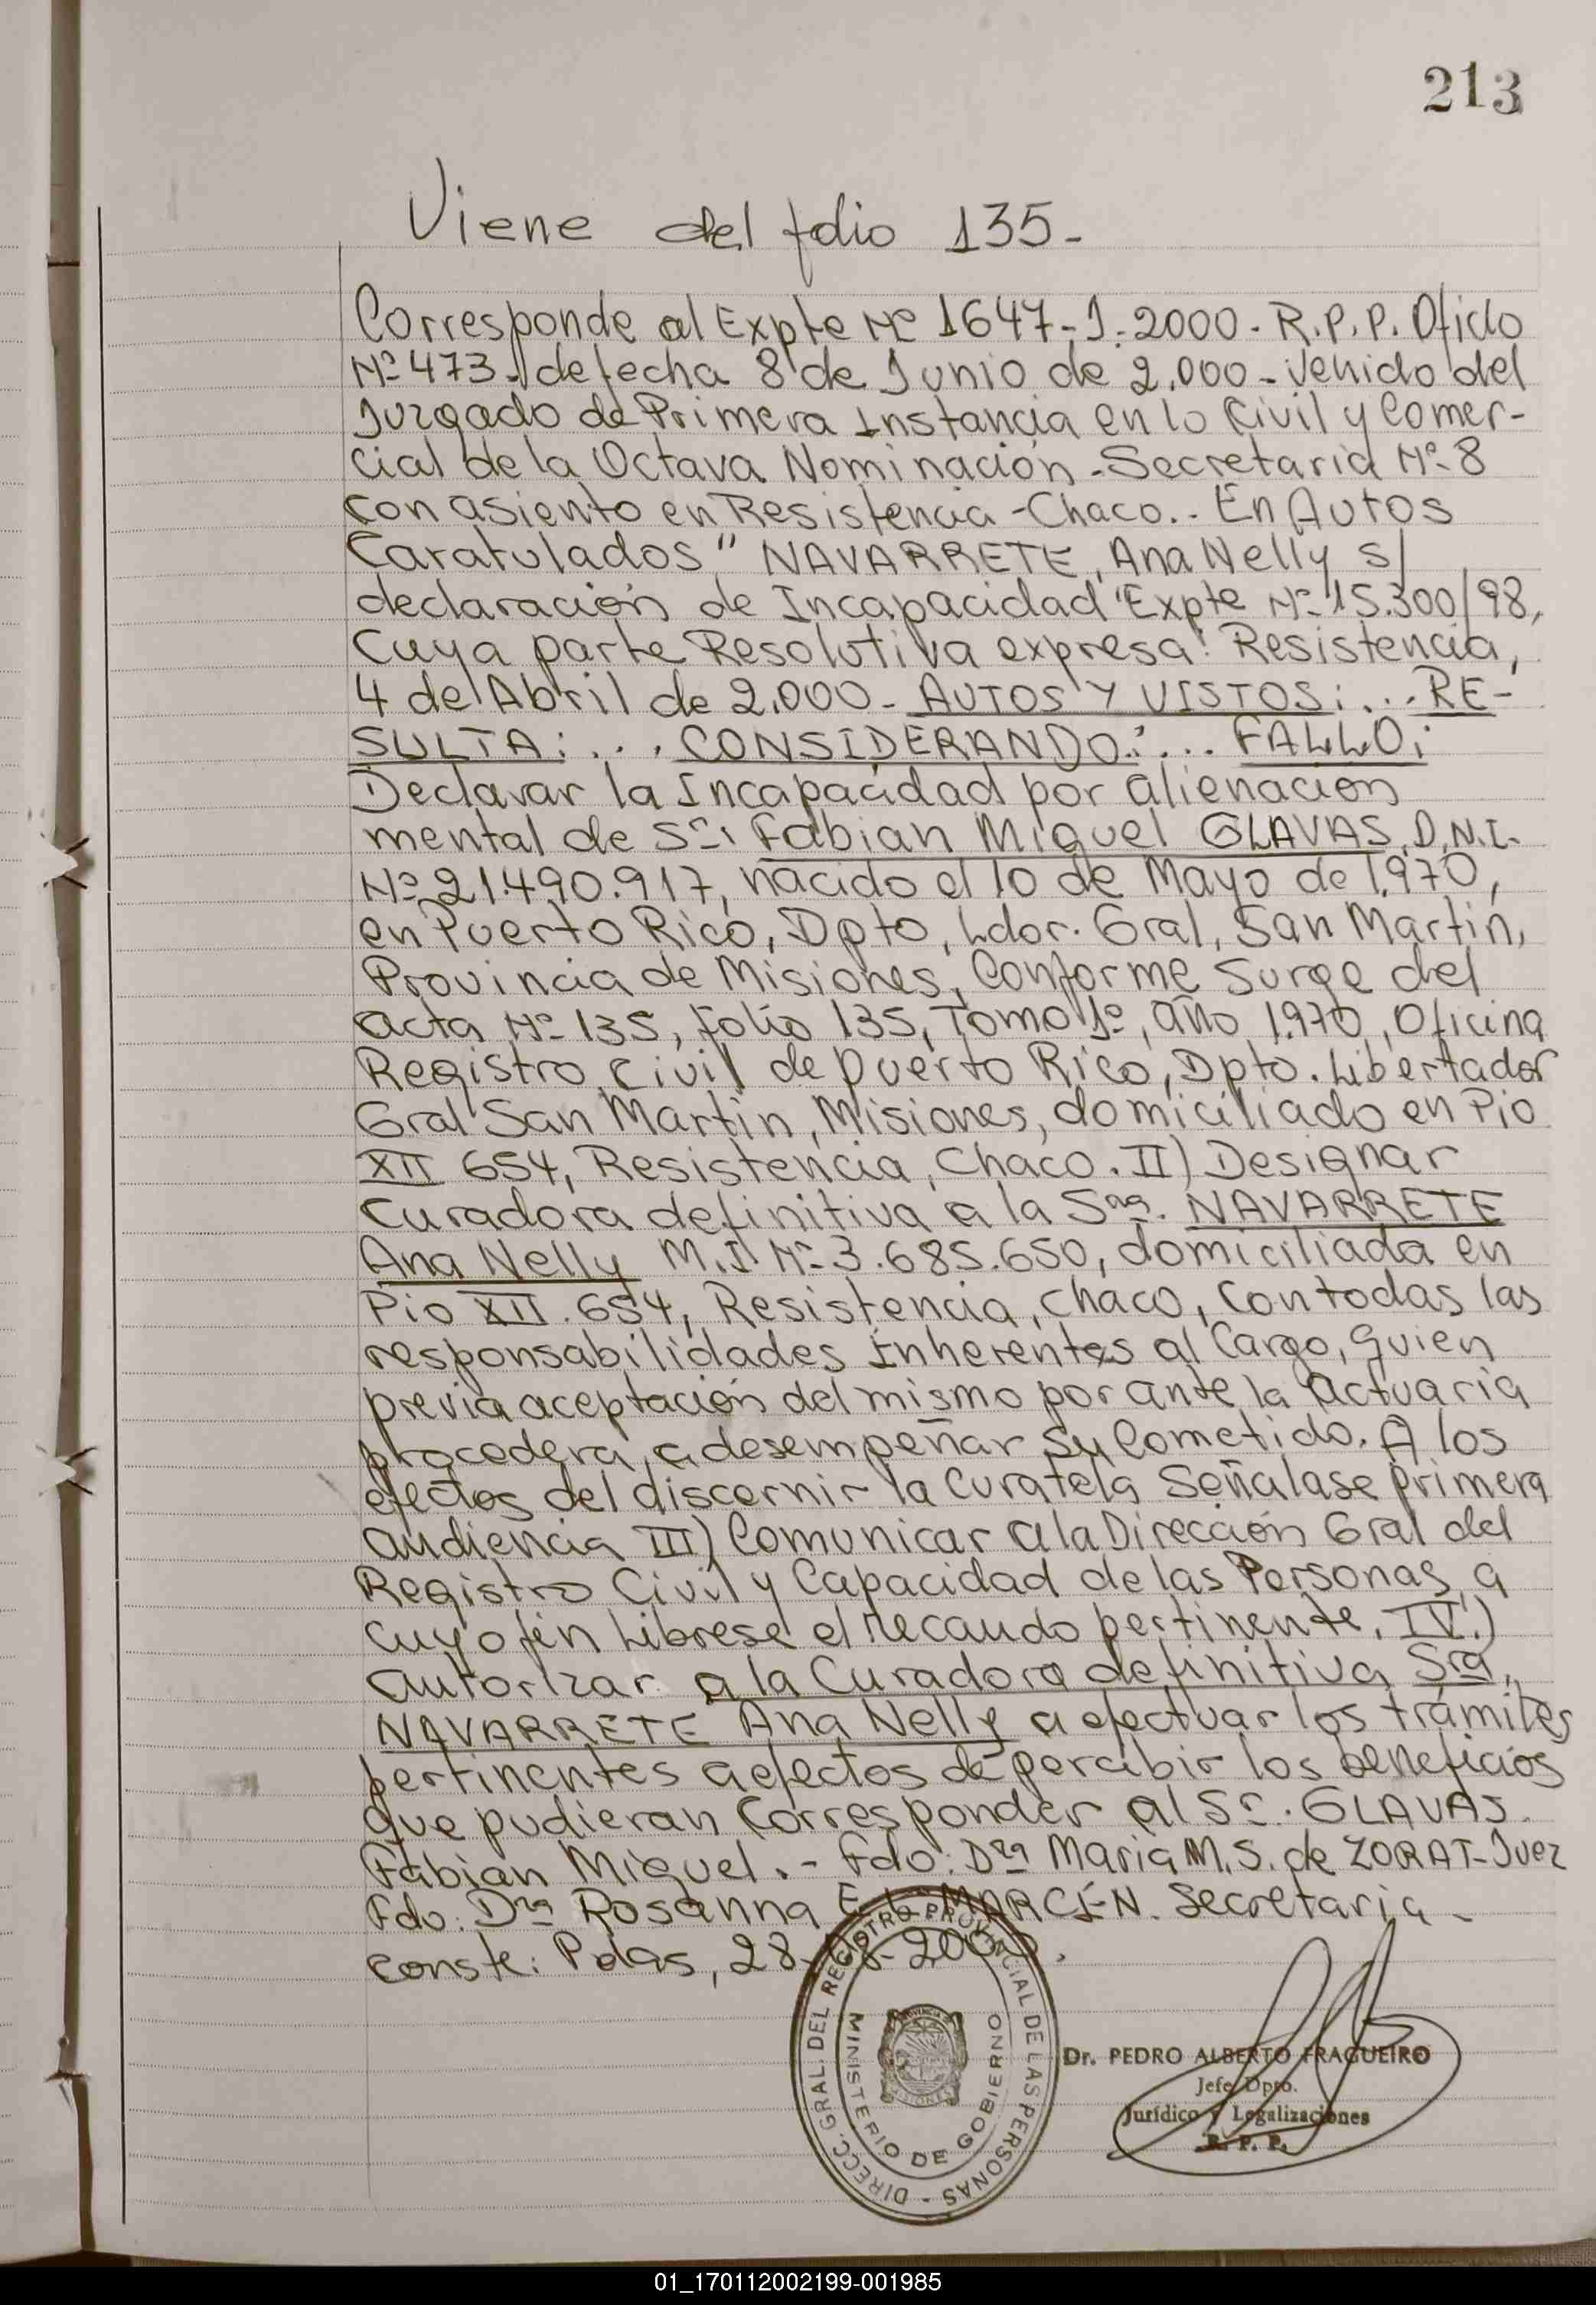 213
Viene del folio 135-
Corresponde al Expte Nº 1647-J-2000-R.P.P. Oficio
Nº 473- de fecha 8 de Junio de 2.000- venido del
Juzgado de Primera Instancia en lo Civil y Comer-
cial de la Octava Nominación-Secretaria Nº 8
con asiento en Resistencia-Chaco.. En Autos
Caratulados " NAVARRETE, Ana Nelly s/
declaración de Incapacidad "Expte Nº 15.300/98,
Cuya parte Resolutiva expresa: Resistencia,
4 de Abril de 2.000- AUTOS Y VISTOS:... RE-
SULTA:... CONSIDERANDO:... FALLO:
Declarar la Incapacidad por alienacion
mental de Sr. Fabian Miguel GLAVAS, D.N.I.
Nº 21.490.917, nacido el 10 de Mayo de 1.970,
en Puerto Rico, Dpto, Ldor. Gral, San Martin,
Provincia de Misiones, Conforme Surge del
acta Nº 135, folio 135, Tomo 1º, año 1.970, Oficina
Registro Civil de Puerto Rico, Dpto. Libertador
Gral San Martin, Misiones, domiciliado en Pio
XII 654, Resistencia, Chaco. II) Designar
Curadora definitiva a la Sra. NAVARRETE
Ana Nelly M.I. Nº 3.685.650, domiciliada en
Pio XII. 654, Resistencia, Chaco, Con todas las
responsabilidades Inherentes al Cargo, quien
previa aceptación del mismo por ante la Actuaria
procedera a desempeñar su Cometido. A los
efectos del discernir la Curatela Señalase primera
audiencia III) Comunicar a la Dirección Gral del
Registro Civil y Capacidad de las Personas, a
cuyo fin Librese el recaudo pertinente. IV.)
autorizar a la Curadora definitiva Sra,
NAVARRETE Ana Nelly a efectuar los trámites
pertinentes a efectos de percibir los beneficios
que pudieran Corresponder al Sr. GLAVAS
Fabian Miguel.- Fdo: Dra Maria M.S. de ZORAT-Juez
Fdo: Dra Rosanna E. I. MARCHEN. Secretaria-
Conste: Pdas, 28-08-2000.
DIRECC. GRAL. DEL REGISTRO PROVINCIAL DE LAS PERSONAS -
MINISTERIO DE GOBIERNO
Dr. PEDRO ALBERTO FRAGUEIRO
Jefe Dpto.
Jurídico y Legalizaciones
R. P. P.
01_170112002199-001985